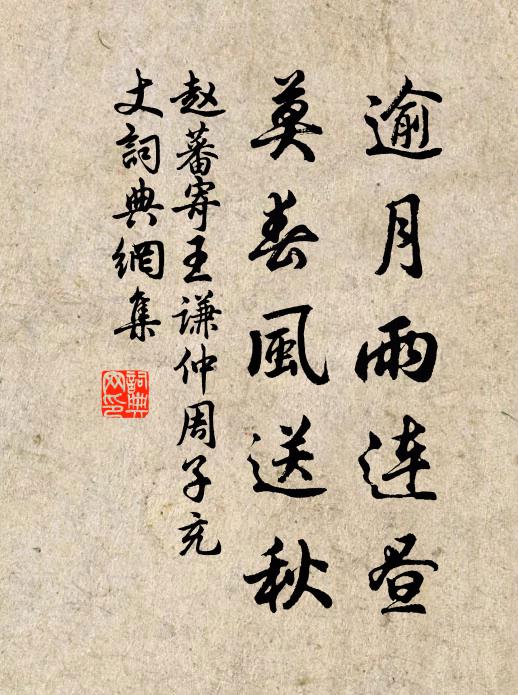 逾月雨连昼
莫春風送秋
赵蕃寄王谦仲周子充
丈詞典網集
詞典网印